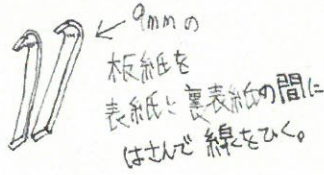 9mmの
板紙を
表紙と裏表紙の間に
はさんで線をひく。